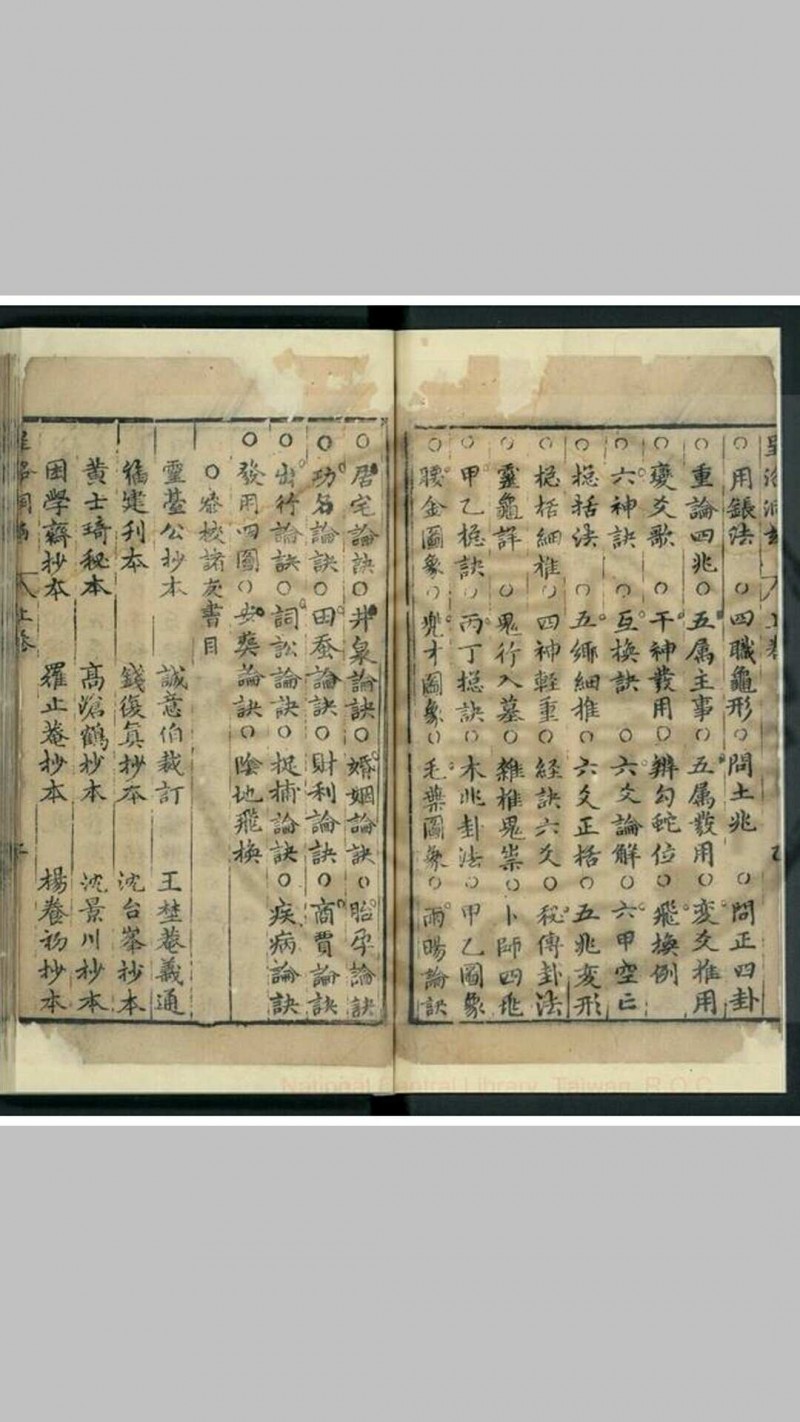 ○用鋹法○四職龜形○問土兆○問正四卦
○重論四兆○五属主事○五属發用○变爻推用
○變爻歌○干神發用○辨勾蛇位○飛換例
○六神訣○互換訣○六爻論解○六甲空亡
○捴括法○五鄉細推○六爻正括○五兆变形
捴括細推○四神輕重○経訣六爻○秘傳卦法
○靈龜詳○鬼行入墓○雜推鬼祟○卜師四
○甲乙捴訣○丙丁捴訣○木兆卦法○甲乙圖象
○腰金圖象○兜才圖象○毛葉圖象○雨暘論訣
○居宅論訣○井泉論訣○婚姻論訣○胎孕論訣
○功名論訣○田蚕論訣○財利論訣○商賈論訣
○出行論訣○詞訟論訣○捉捕論訣○疾病論訣
○發用四圖○安塟論訣○陰地飛換
○叅校諸友書目
靈臺公抄本 誠意伯裁訂 王埜菴義通
福建刊本 錢復真抄本 沈台峯抄本
黄士琦秘本 高滄鶴抄本 沈景川抄本
困學齋抄本 羅止菴抄本 楊養初抄本
National Central Library, Taiwan, R.O.C